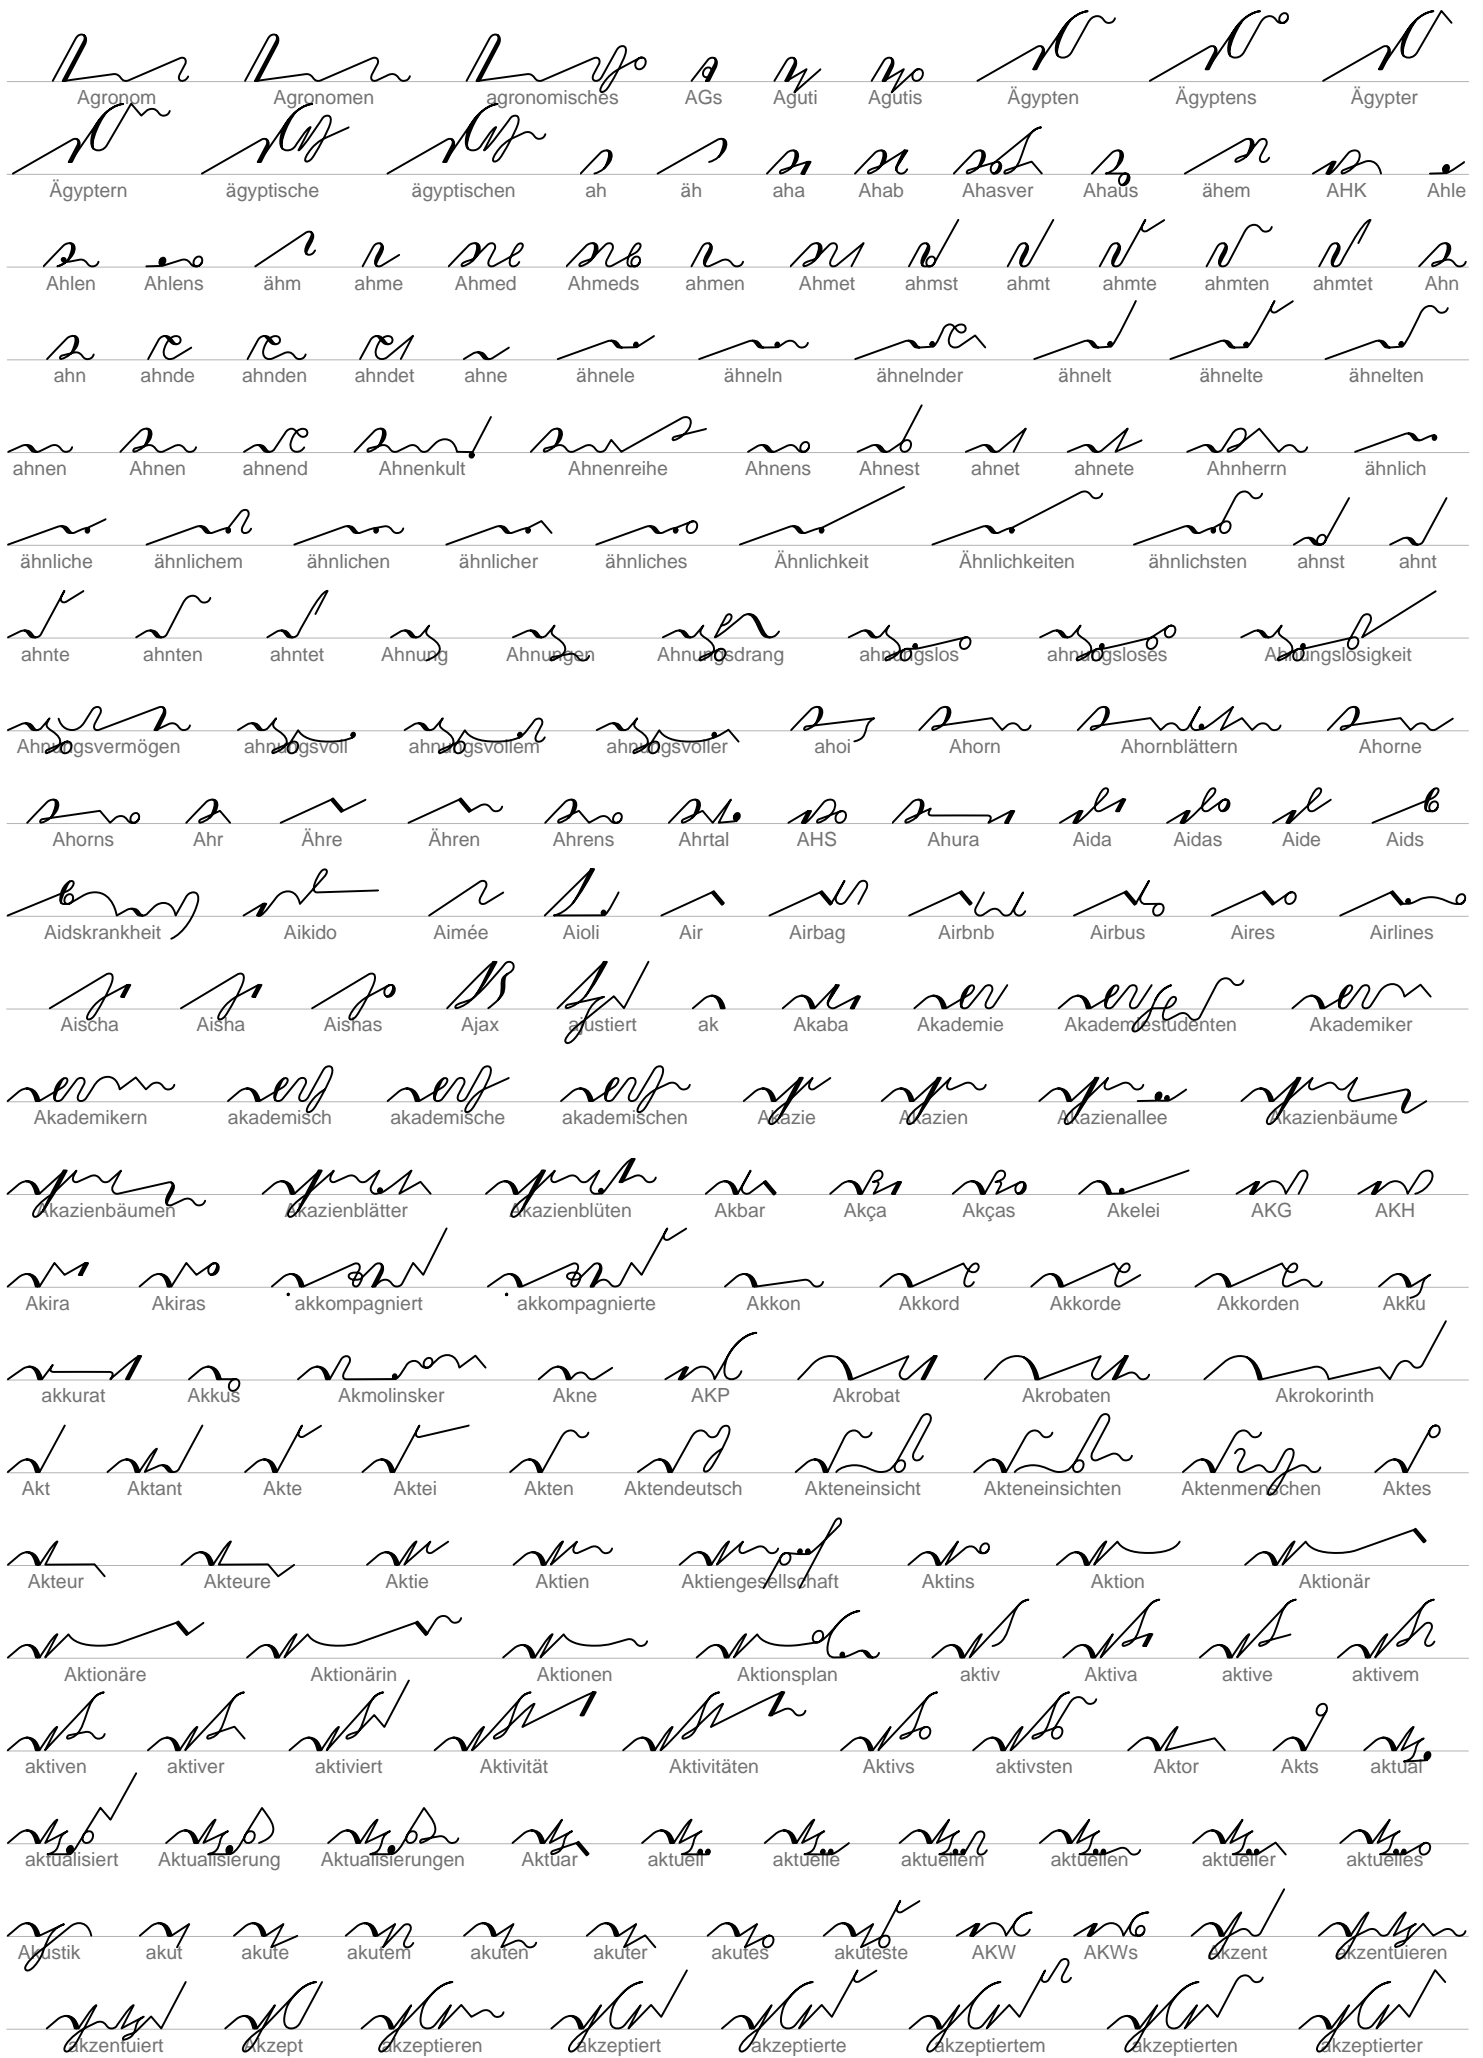 Agronom Agronomen agronomisches AGs Aguti Agutis Ägypten Ägyptens Ägypter
Ägyptern ägyptische ägyptischen ah äh aha Ahab Ahasver Ahaus ähem AHK Ahle
Ahlen Ahlens ähm ahme Ahmed Ahmeds ahmen Ahmet ahmst ahmt ahmte ahmten ahmtet Ahn
ahn ahnde ahnden ahndet ahne ähnele ähneln ähnelnder ähnelt ähnelte ähnelten
ahnen Ahnen ahnend Ahnenkult Ahnenreihe Ahnens Ahnest ahnet ahnete Ahnherrn ähnlich
ähnliche ähnlichem ähnlichen ähnlicher ähnliches Ähnlichkeit Ähnlichkeiten ähnlichsten ahnst ahnt
ahnte ahnten ahntet Ahnung Ahnungen Ahnungsdrang ahnungslos ahnungsloses Ahnungslosigkeit
Ahnungsvermögen ahnungsvoll ahnungsvollem ahnungsvoller ahoi Ahorn Ahornblättern Ahorne
Ahorns Ahr Ähre Ähren Ahrens Ahrtal AHS Ahura Aida Aidas Aide Aids
Aidskrankheit Aikido Aimée Aioli Air Airbag Airbnb Airbus Aires Airlines
Aischa Aisha Aishas Ajax ajustiert ak Akaba Akademie Akademiestudenten Akademiker
Akademikern akademisch akademische akademischen Akazie Akazien Akazienallee Akazienbäume
Akazienbäumen Akazienblätter Akazienblüten Akbar Akça Akças Akelei AKG AKH
Akira Akiras akkompagniert akkompagnierte Akkon Akkord Akkorde Akkorden Akku
akkurat Akkus Akmolinsker Akne AKP Akrobat Akrobaten Akrokorinth
Akt Aktant Akte Aktei Akten Aktendeutsch Akteneinsicht Akteneinsichten Aktenmenschen Aktes
Akteur Akteure Aktie Aktien Aktiengesellschaft Aktins Aktion Aktionär
Aktionäre Aktionärin Aktionen Aktionsplan aktiv Aktiva aktive aktivem
aktiven aktiver aktiviert Aktivität Aktivitäten Aktivs aktivsten Aktor Akts aktual
aktualisiert Aktualisierung Aktualisierungen Aktuar aktuell aktuelle aktuellem aktuellen aktueller aktuelles
Akustik akut akute akutem akuten akuter akutes akuteste AKW AKWs Akzent akzentuieren
akzentuiert Akzept akzeptieren akzeptiert akzeptierte akzeptiertem akzeptierten akzeptierter